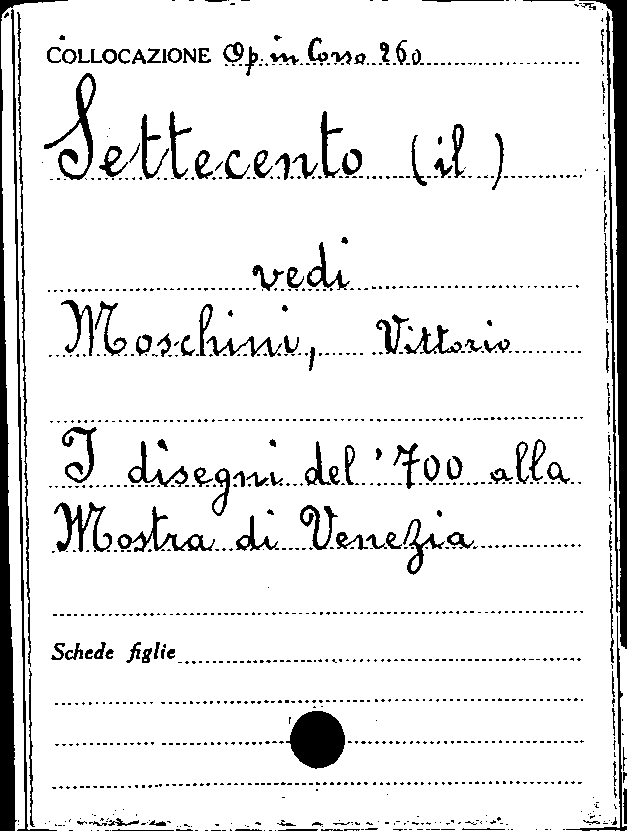 COLLOCAZIONE Op. in Corso 260
Settecento (il)
vedi
Moschini, Vittorio
I disegni del '700 alla
Mostra di Venezia
Schede figlie